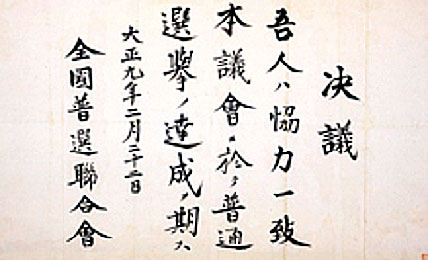 决議
吾人ハ恊力一致
本議會ニ於テ普通
選擧ノ達成ヲ期ス
大正九年二月二十二日
全國普選聯合會